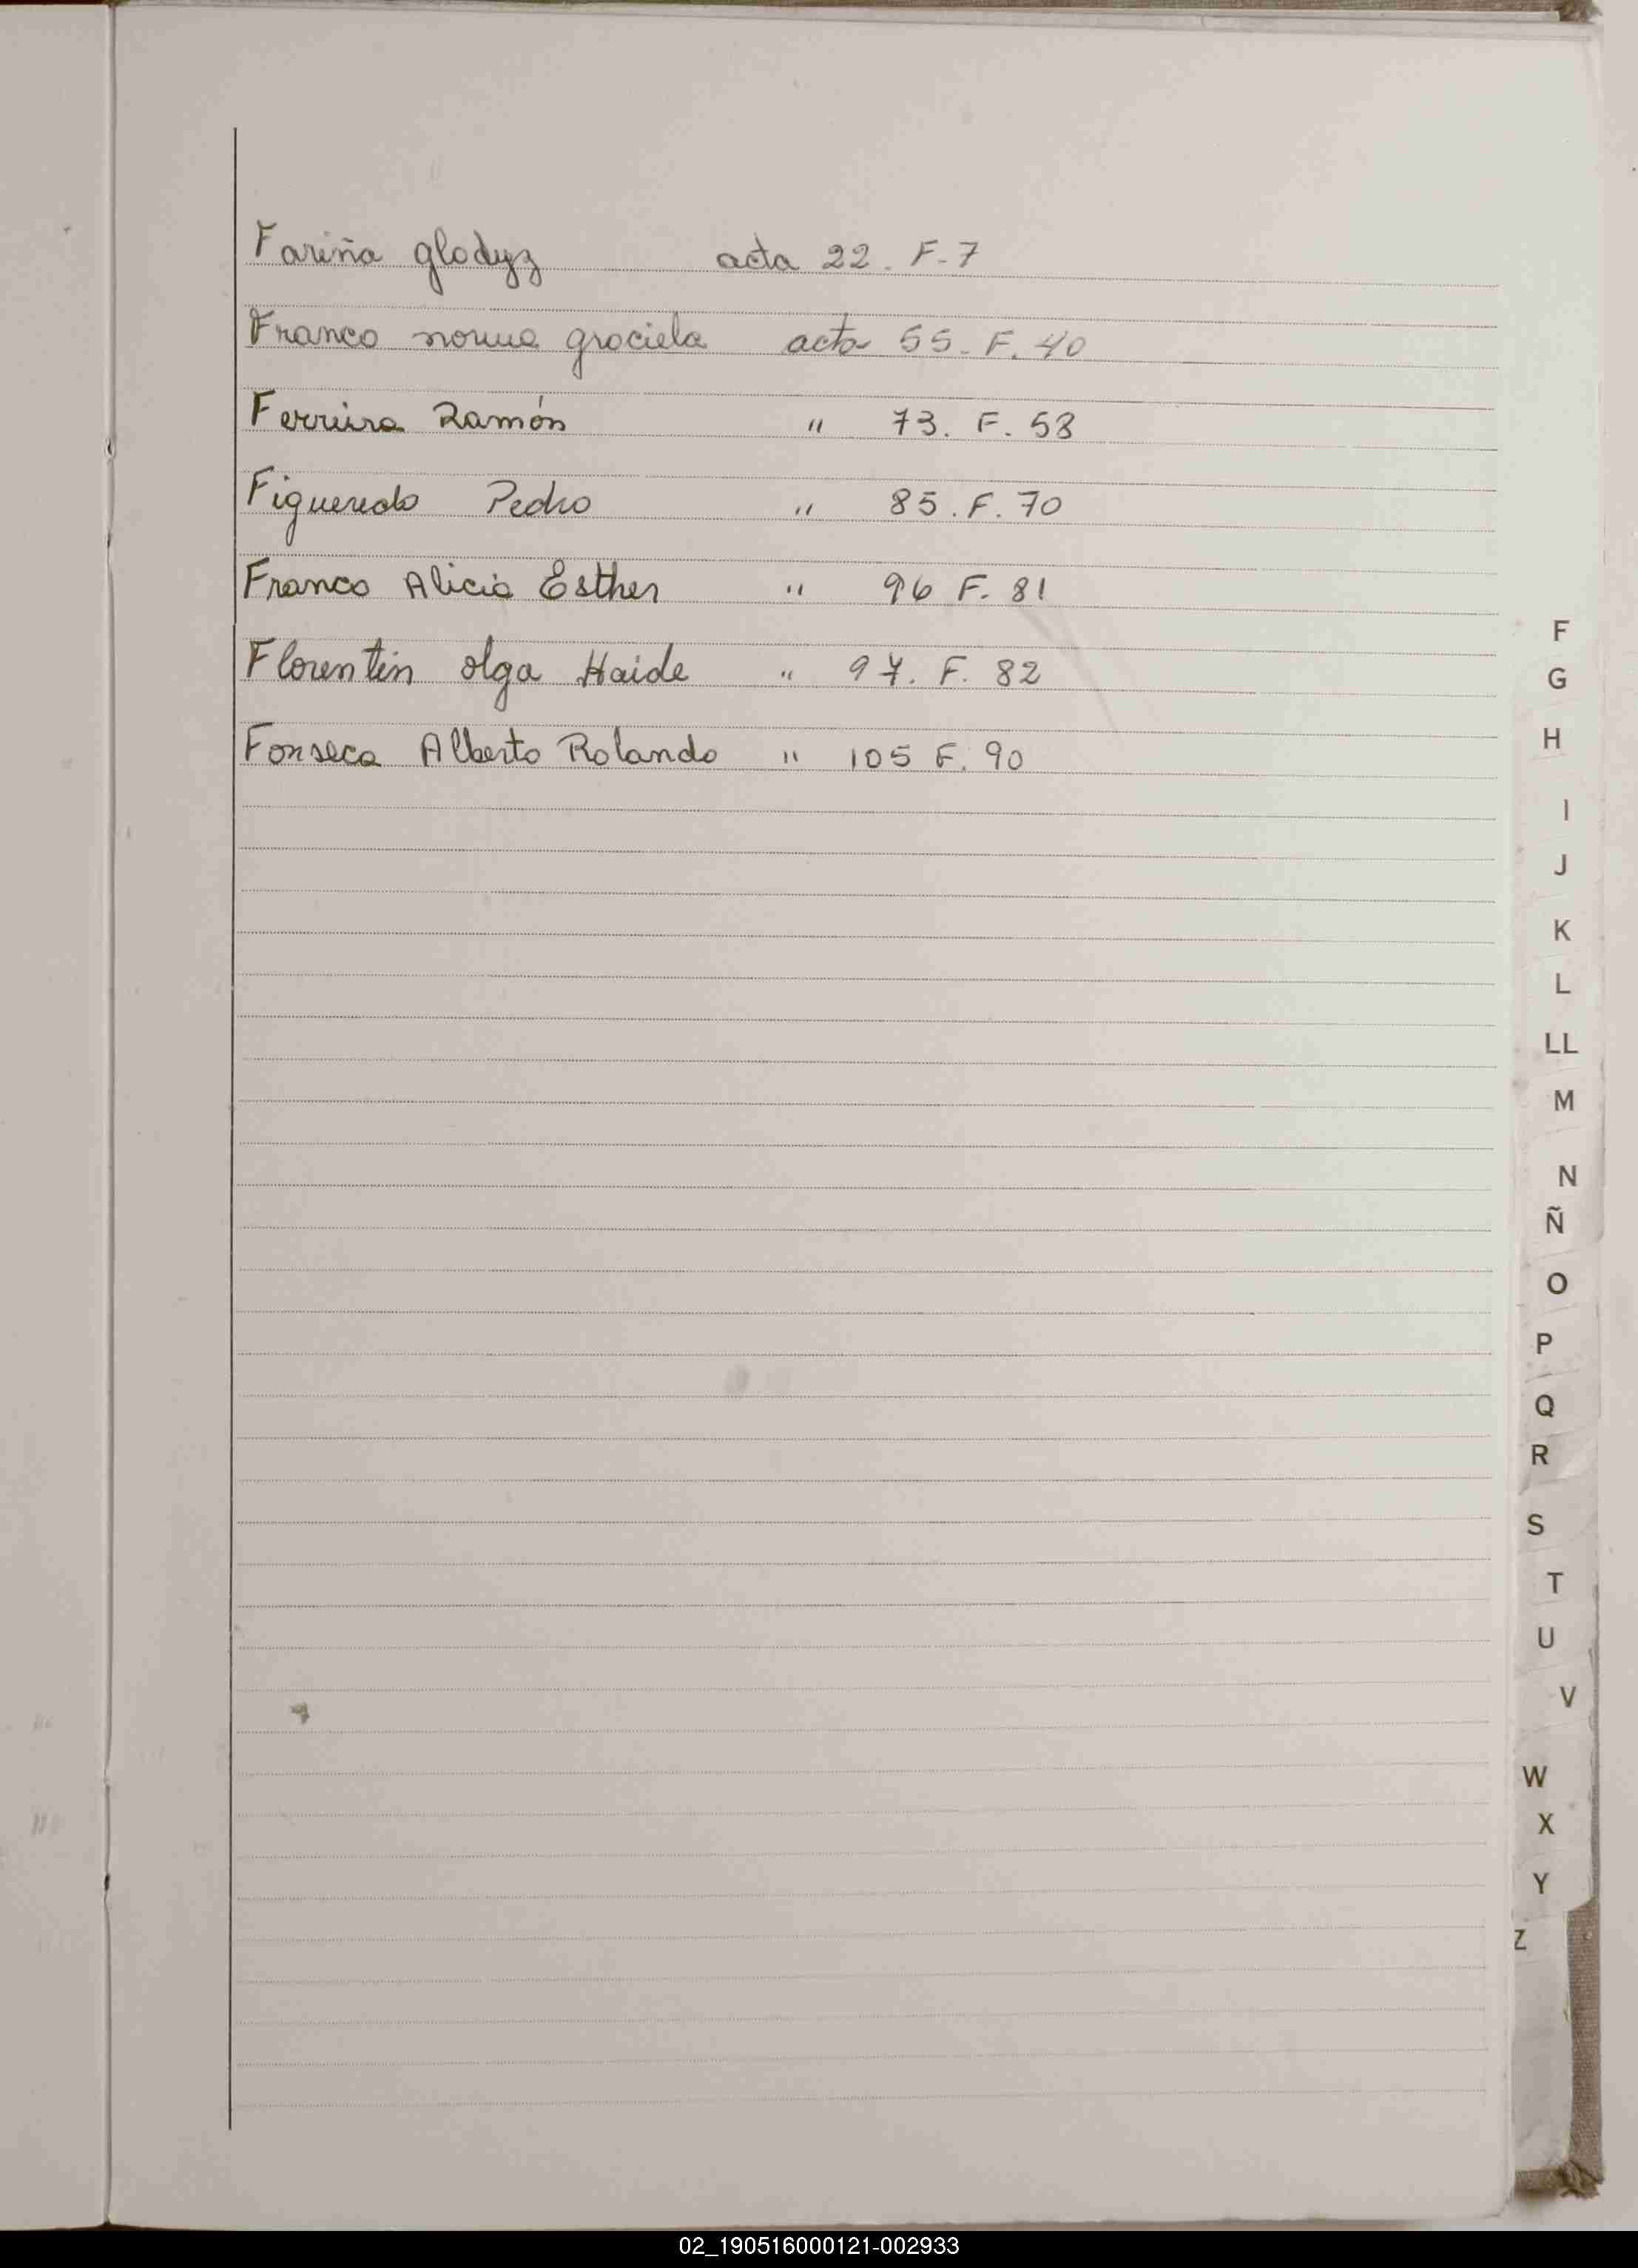 Fariña gladyz acta 22. F-7
Franco norma graciela acta 55. F. 40
Ferreira Ramón " 73. F. 58
Figueredo Pedro " 85. F. 70
Franco Alicia Esther " 96 F. 81
Florentin olga Haide " 97. F. 82
Fonseca Alberto Rolando " 105 F. 90
F
G
H
I
J
K
L
LL
M
N
Ñ
O
P
Q
R
S
T
U
V
W
X
Y
Z
02_190516000121-002933